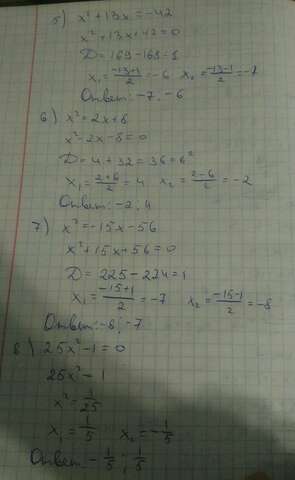 5) x² + 13x = -42
x² + 13x + 42 = 0
D = 169 - 168 = 1
x₁ = (-13+1)/2 = -6 x₂ = (-13-1)/2 = -7
Ответ: -7, -6
6) x² = 2x + 8
x² - 2x - 8 = 0
D = 4 + 32 = 36 = 6²
x₁ = (2+6)/2 = 4 x₂ = (2-6)/2 = -2
Ответ: -2, 4
7) x² = -15x - 56
x² + 15x + 56 = 0
D = 225 - 224 = 1
x₁ = (-15+1)/2 = -7 x₂ = (-15-1)/2 = -8
Ответ: -8; -7
8) 25x² - 1 = 0
25x² - 1
x² = 1/25
x₁ = 1/5 x₂ = -1/5
Ответ - 1/5; 1/5